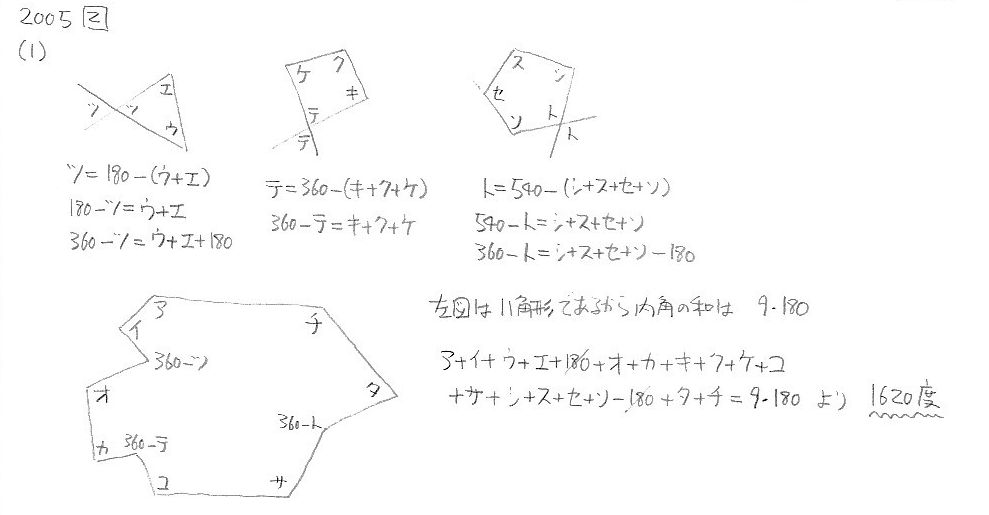 2005 2
(1)
エ
ツ ツ
ウ
ツ=180-(ウ+エ)
180-ツ=ウ+エ
360-ツ=ウ+エ+180
ケ ク
キ
テ
テ
テ=360-(キ+ク+ケ)
360-テ=キ+ク+ケ
ス シ
セ
ソ ト
ト
ト=540-(シ+ス+セ+ソ)
540-ト=シ+ス+セ+ソ
360-ト=シ+ス+セ+ソ-180
ア
イ チ
360-ツ
オ タ
360-ト
カ 360-テ
コ サ
左図は11角形であるから内角の和は 9・180
ア+イ+ウ+エ+180+オ+カ+キ+ク+ケ+コ
+サ+シ+ス+セ+ソ-180+タ+チ=9・180 より 1620度